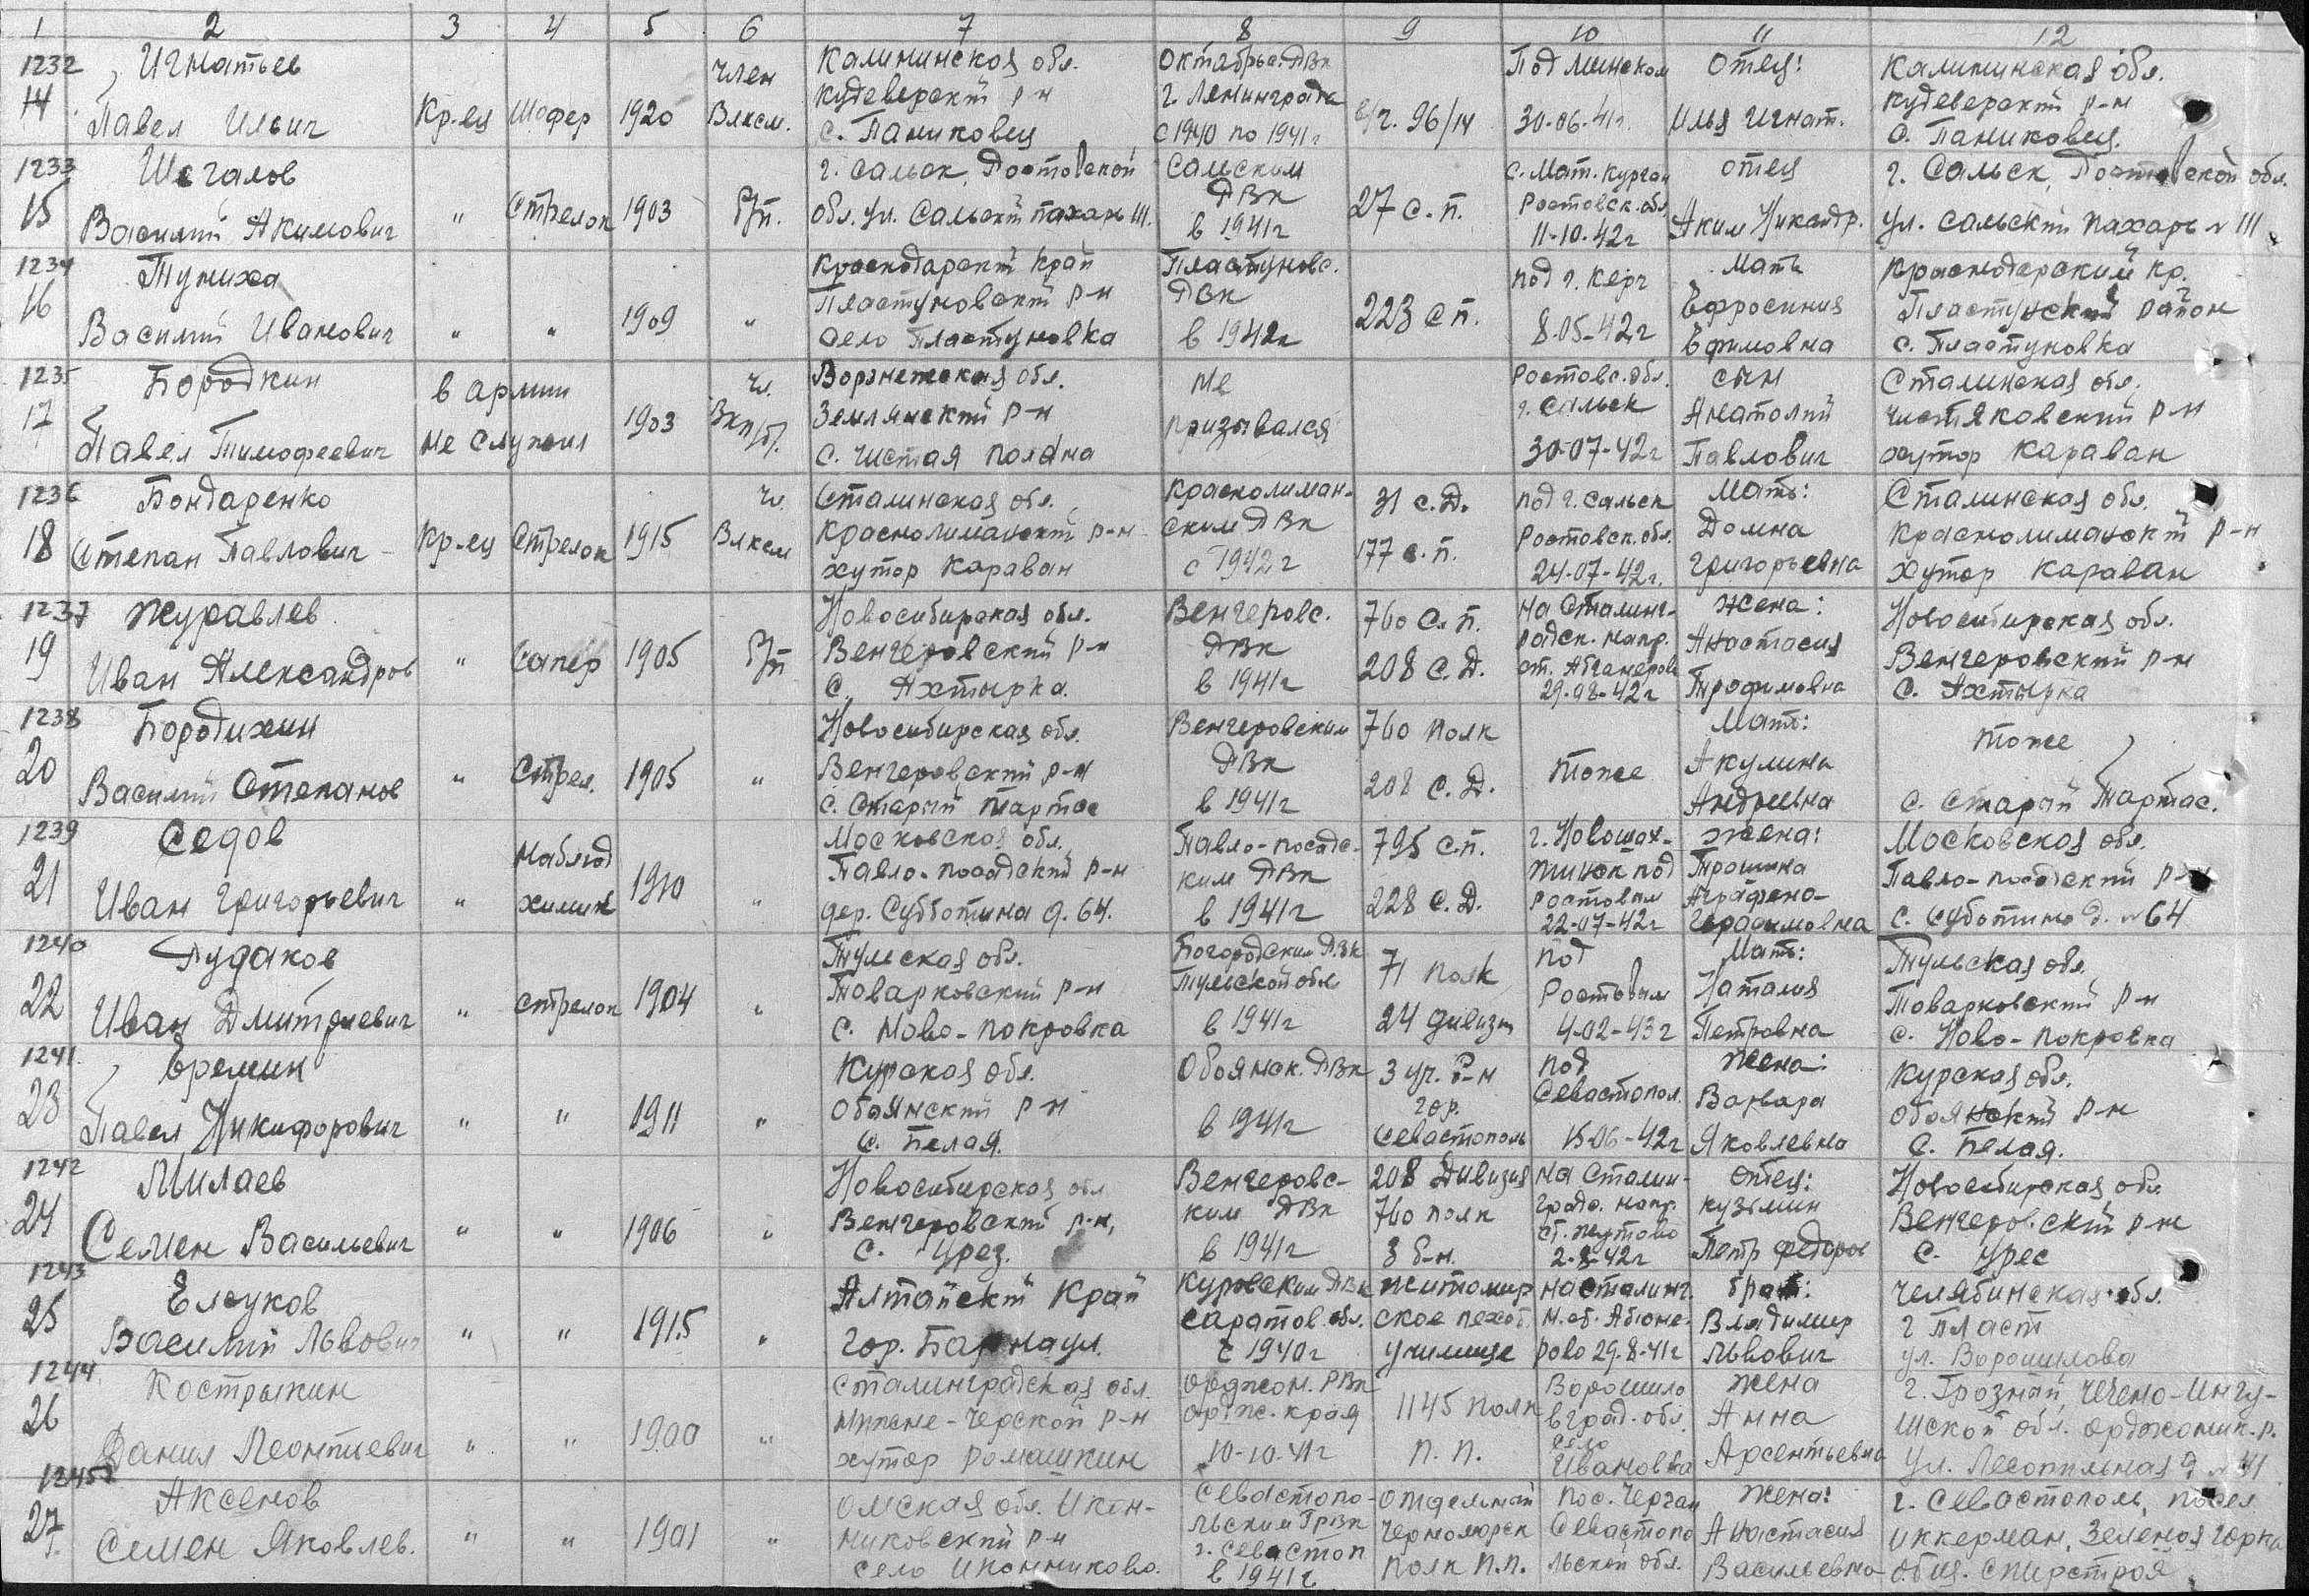 1 2 3 4 5 6 7 8 9 10 11 12
1232 Игнатьев член Калининская обл. Октябрьс. РВК Под Минском отец: Калининская обл.
14 Павел Ильич Кр-ец Шофер 1920 Влксм. Кудеверский р-н г. Ленинграда в/ч. 96/14 30-06-41г. Илья Игнат. Кудеверский р-н
с. Паниковец с 1940 по 1941г с. Паниковец.
1233 Шегалов г. Сальск, Ростовской Сальским с. Мат. Курган отец г. Сальск, Ростовской обл.
15 Василий Акимович " Стрелок 1903 б/п. обл. ул. Сальский пахарь 111. РВК 27 с.п. Ростовск. обл. Аким Никандр. ул. Сальский пахарь № 111
в 1941г 11-10-42г
1234 Туниха Краснодарский край Пластуновс. под г. Керч Мать Краснодарский кр.
16 Василий Иванович " " 1909 " Пластуновский р-н РВК 223 сп. 8-05-42г Ефросиния Пластунский район
село Пластуновка в 1942г Ефимовна с. Пластуновка
1235 Бородкин в армии чл. Воронежская обл. Не Ростовс. обл. сын Сталинская обл.
17 Павел Тимофеевич не служил 1903 Вкп/б/. Землянский р-н призывался г. Сальск Анатолий Чистяковский р-н
с. Чистая поляна 30-07-42г Павлович хутор Караван
1236 Бондаренко чл. Сталинская обл. Краснолиман- 31 с.д. под г. Сальск Мать: Сталинская обл.
18 Степан Павлович Кр-ец Стрелок 1915 Влксм Краснолиманский р-н ским РВК 177 с.п. Ростовск. обл. Домна Краснолиманский р-н
хутор Караван с 1942г 24-07-42г. Григорьевна хутор Караван
1237 Журавлев Новосибирская обл. Венгеровс. 760 с.п. на Сталинг- Жена: Новосибирская обл.
19 Иван Александров " Сапер 1905 б/п Венгеровский р-н РВК 208 с.д. радск. напр. Анастасия Венгеровский р-н
с. Ахтырка. в 1941г ст. Абганерово 29-08-42г Трофимовна с. Ахтырка
1238 Бородихин Новосибирская обл. Венгеровским 760 полк Мать: тоже
20 Василий Степанов " Стрел. 1905 " Венгеровский р-н РВК 208 с.д. тоже Акулина
с. Старый Тартас в 1941г Андреевна с. Старый Тартас.
1239 Седов Наблюд Московская обл. Павло-посадс- 795 с.п. г. Новошах- жена: Московская обл.
21 Иван Григорьевич " химик 1910 " Павло-посадский р-н ким РВК 228 с.д. тинск под Трошина Павло-посадский р-н
дер. Субботина д. 64. в 1941г Ростовом 22-07-42г Аграфена Герасимовна с. Суботино д. №64
1240 Рудаков Тульская обл. Богородским РВК 71 полк под Мать: Тульская обл.
22 Иван Дмитриевич " стрелок 1904 " Товарковский р-н Тульской обл 24 дивизия Ростовом Наталия Товарковский р-н
с. Ново-покровка в 1941г 4-02-43г Петровна с. Ново-покровка
1241 Еремин Курская обл. Обоянск. РВК 3 уч. р-н под Жена: Курская обл.
23 Павел Никифорович " " 1911 " Обоянский р-н в 1941г гор. Севастопол. Варвара Обоянский р-н
с. Белая. Севастополь 15-06-42г Яковлевна с. Белая.
1242 Милаев Новосибирская обл Венгеровс- 208 Дивизия на Сталин- отец: Новосибирская обл
24 Семен Васильевич " " 1906 " Венгеровский р-н, ким РВК 760 полк градс. напр. Кузьмин Венгеровский р-н
с. Урез. в 1941г 3 б-н. ст. Жутово 2-8-42г Петр Федоров с. Урес
1243 Елсуков Алтайский край Куровским РВК Житомир на Сталинг. брат: Челябинская обл.
25 Василий Львович " " 1915 " гор. Барнаул. Саратов. обл. ское пехот. н. Владимир г Пласт
с 1940г училище рово 29-8-41г Львович ул. Ворошилова
1244 Кострыкин Сталинградская обл. Орджон. РВК Ворошило жена г. Грозный, Чечено-Ингу-
26 Данил Леонтьевич " " 1900 " Нижне-Черской р-н Ордж. края 1145 полк вград. обл. Анна шской обл. орджоник. р.
хутор Ромашкин 10-10-41г п.п. село Ивановка Арсентьевна ул. Лесопильная д № 41
1245 Аксенов Омская обл. Икон- Севастопо- отдельный пос. Черган Жена: г. Севастополь, посел
27 Семен Яковлев. " " 1901 " никовский р-н льским ГРВК Черноморск Севастопо Анастасия Инкерман, Зеленая горка
село Иконниково. г. Севастоп в 1941г полк п.п. льской обл. Васильевна общ. Спирстроя